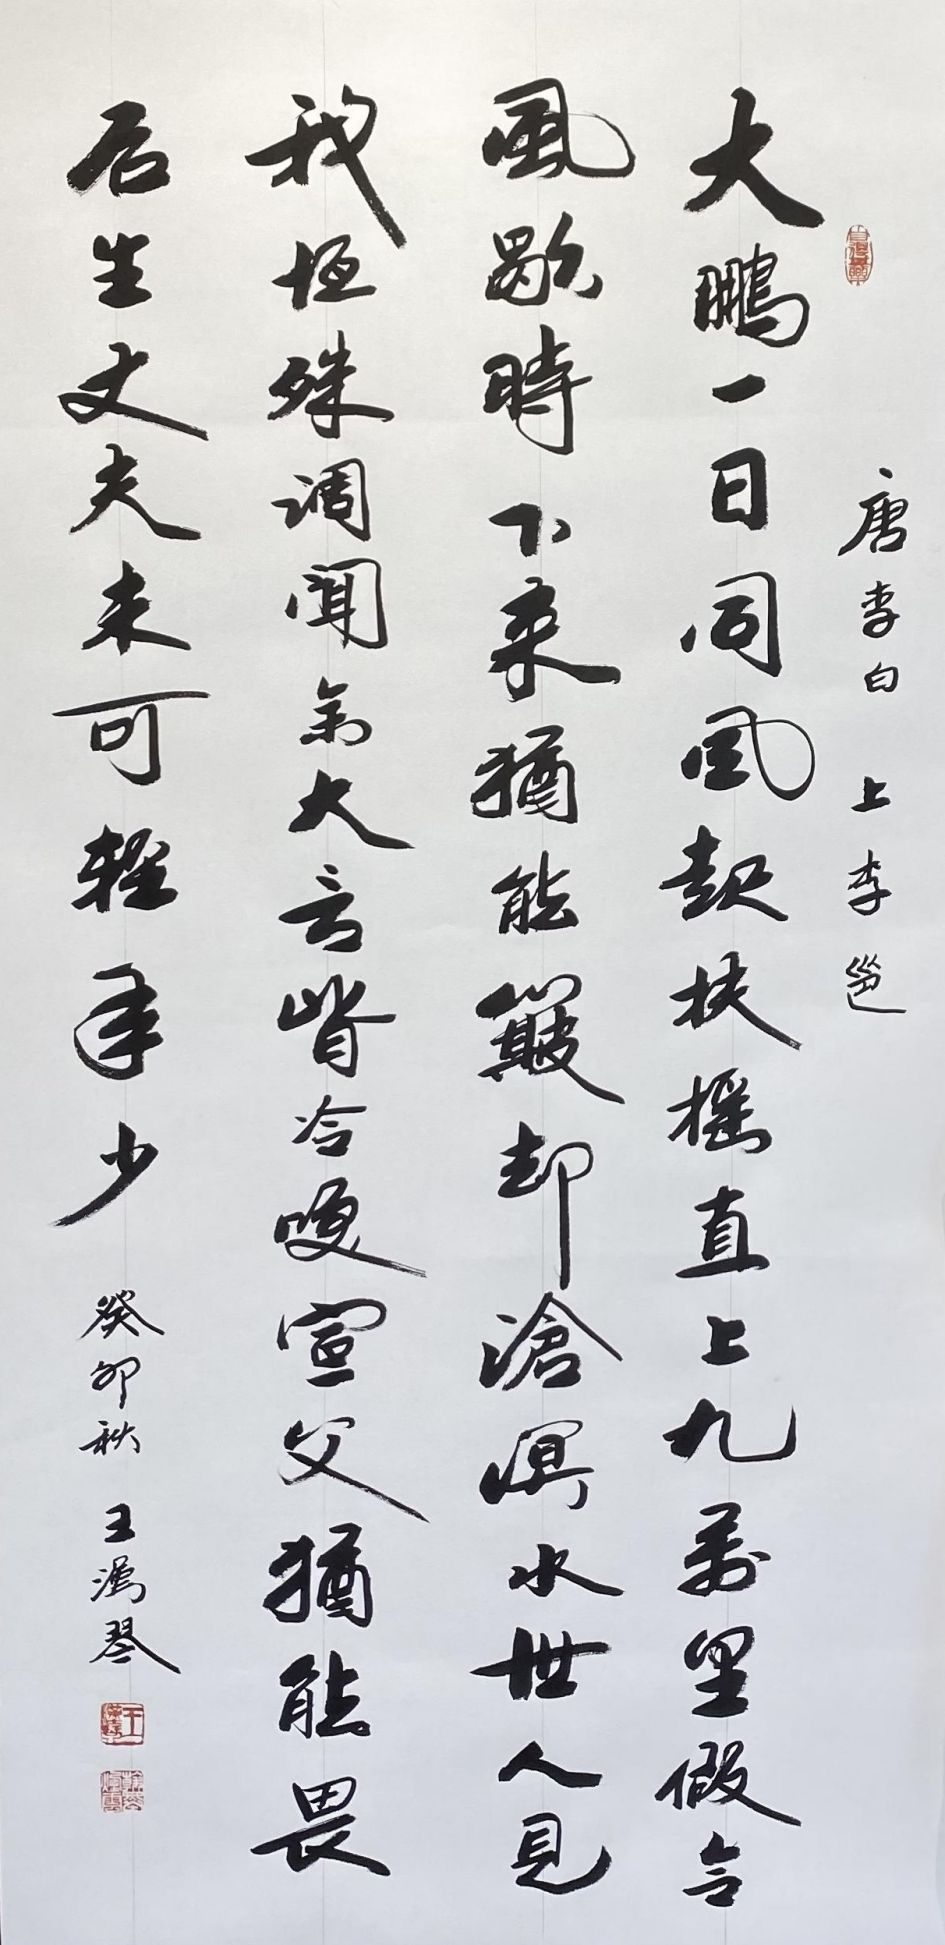 唐李白 上李邕
大鵬一日同風起扶摇直上九萬里假令
風歇時下来猶能簸却滄溟水世人見
我恒殊调聞余大言皆冷笑宣父猶能畏
后生丈夫未可輕年少 癸卯秋 王琴